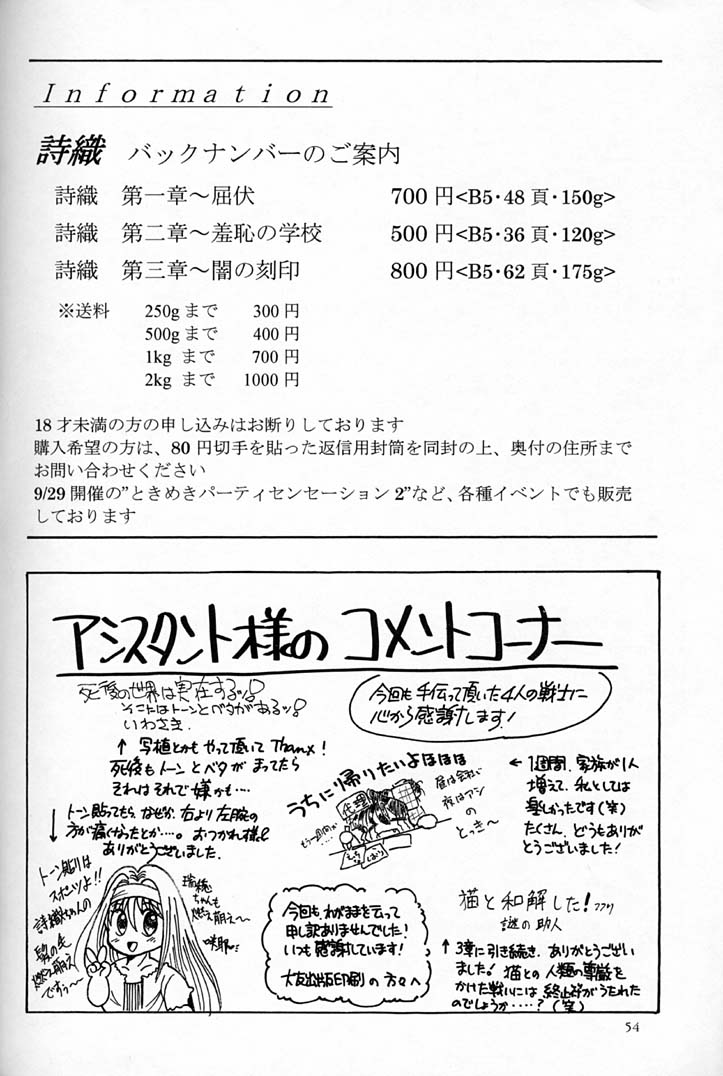 Information
詩織 バックナンバーのご案内
詩織 第一章～屈伏 700円<B5・48頁・150g>
詩織 第二章～羞恥の学校 500円<B5・36頁・120g>
詩織 第三章～闇の刻印 800円<B5・62頁・175g>
※送料 250gまで 300円
500gまで 400円
1kg まで 700円
2kg まで 1000円
18才未満の方の申し込みはお断りしております
購入希望の方は、80円切手を貼った返信用封筒を同封の上、奥付の住所まで
お問い合わせください
9/29開催の"ときめきパーティセンセーション2"など、各種イベントでも販売
しております
アシスタント様の コメントコーナー
死後の世界は実在するッ!
そこにはトーンとベタがあるッ!
いわさき
↑ 写植とかも やって頂いて Thanx!
死後も トーン と ベタ が まってたら
それは それで 嫌かも…
今回も 手伝って頂いた 4人の戦士に
心から 感謝します!
うちに帰りたいよほほほ
昼は会社い
夜はアシ
の
とっき～
代理
← 1週間、家族が1人
増えて、私としては
楽しかったです(笑)
たくさん、どうもありが
とうございました!
↓ トーン貼ってたら、なぜか、右より左腕の
方が痛くなったとか…。おつかれ様&
ありがとうございました。
トーン貼りは
スポーツよ!!
詩織ちゃんの
髪の毛
燃え萌え
ですぅ～
瑞穂
ちゃんも
燃え萌え～
咲耶
今回も、わがままを云って
申し訳ありませんでした!
いつも感謝しています!
大友出版印刷 の 方々へ
猫と和解した! フフリ
謎の助人
↑ 3章に引き続き、ありがとうござい
ました! 猫との 人類の尊厳を
かけた戦いには 終止符がうたれた
のでしょうか……? (笑)
54